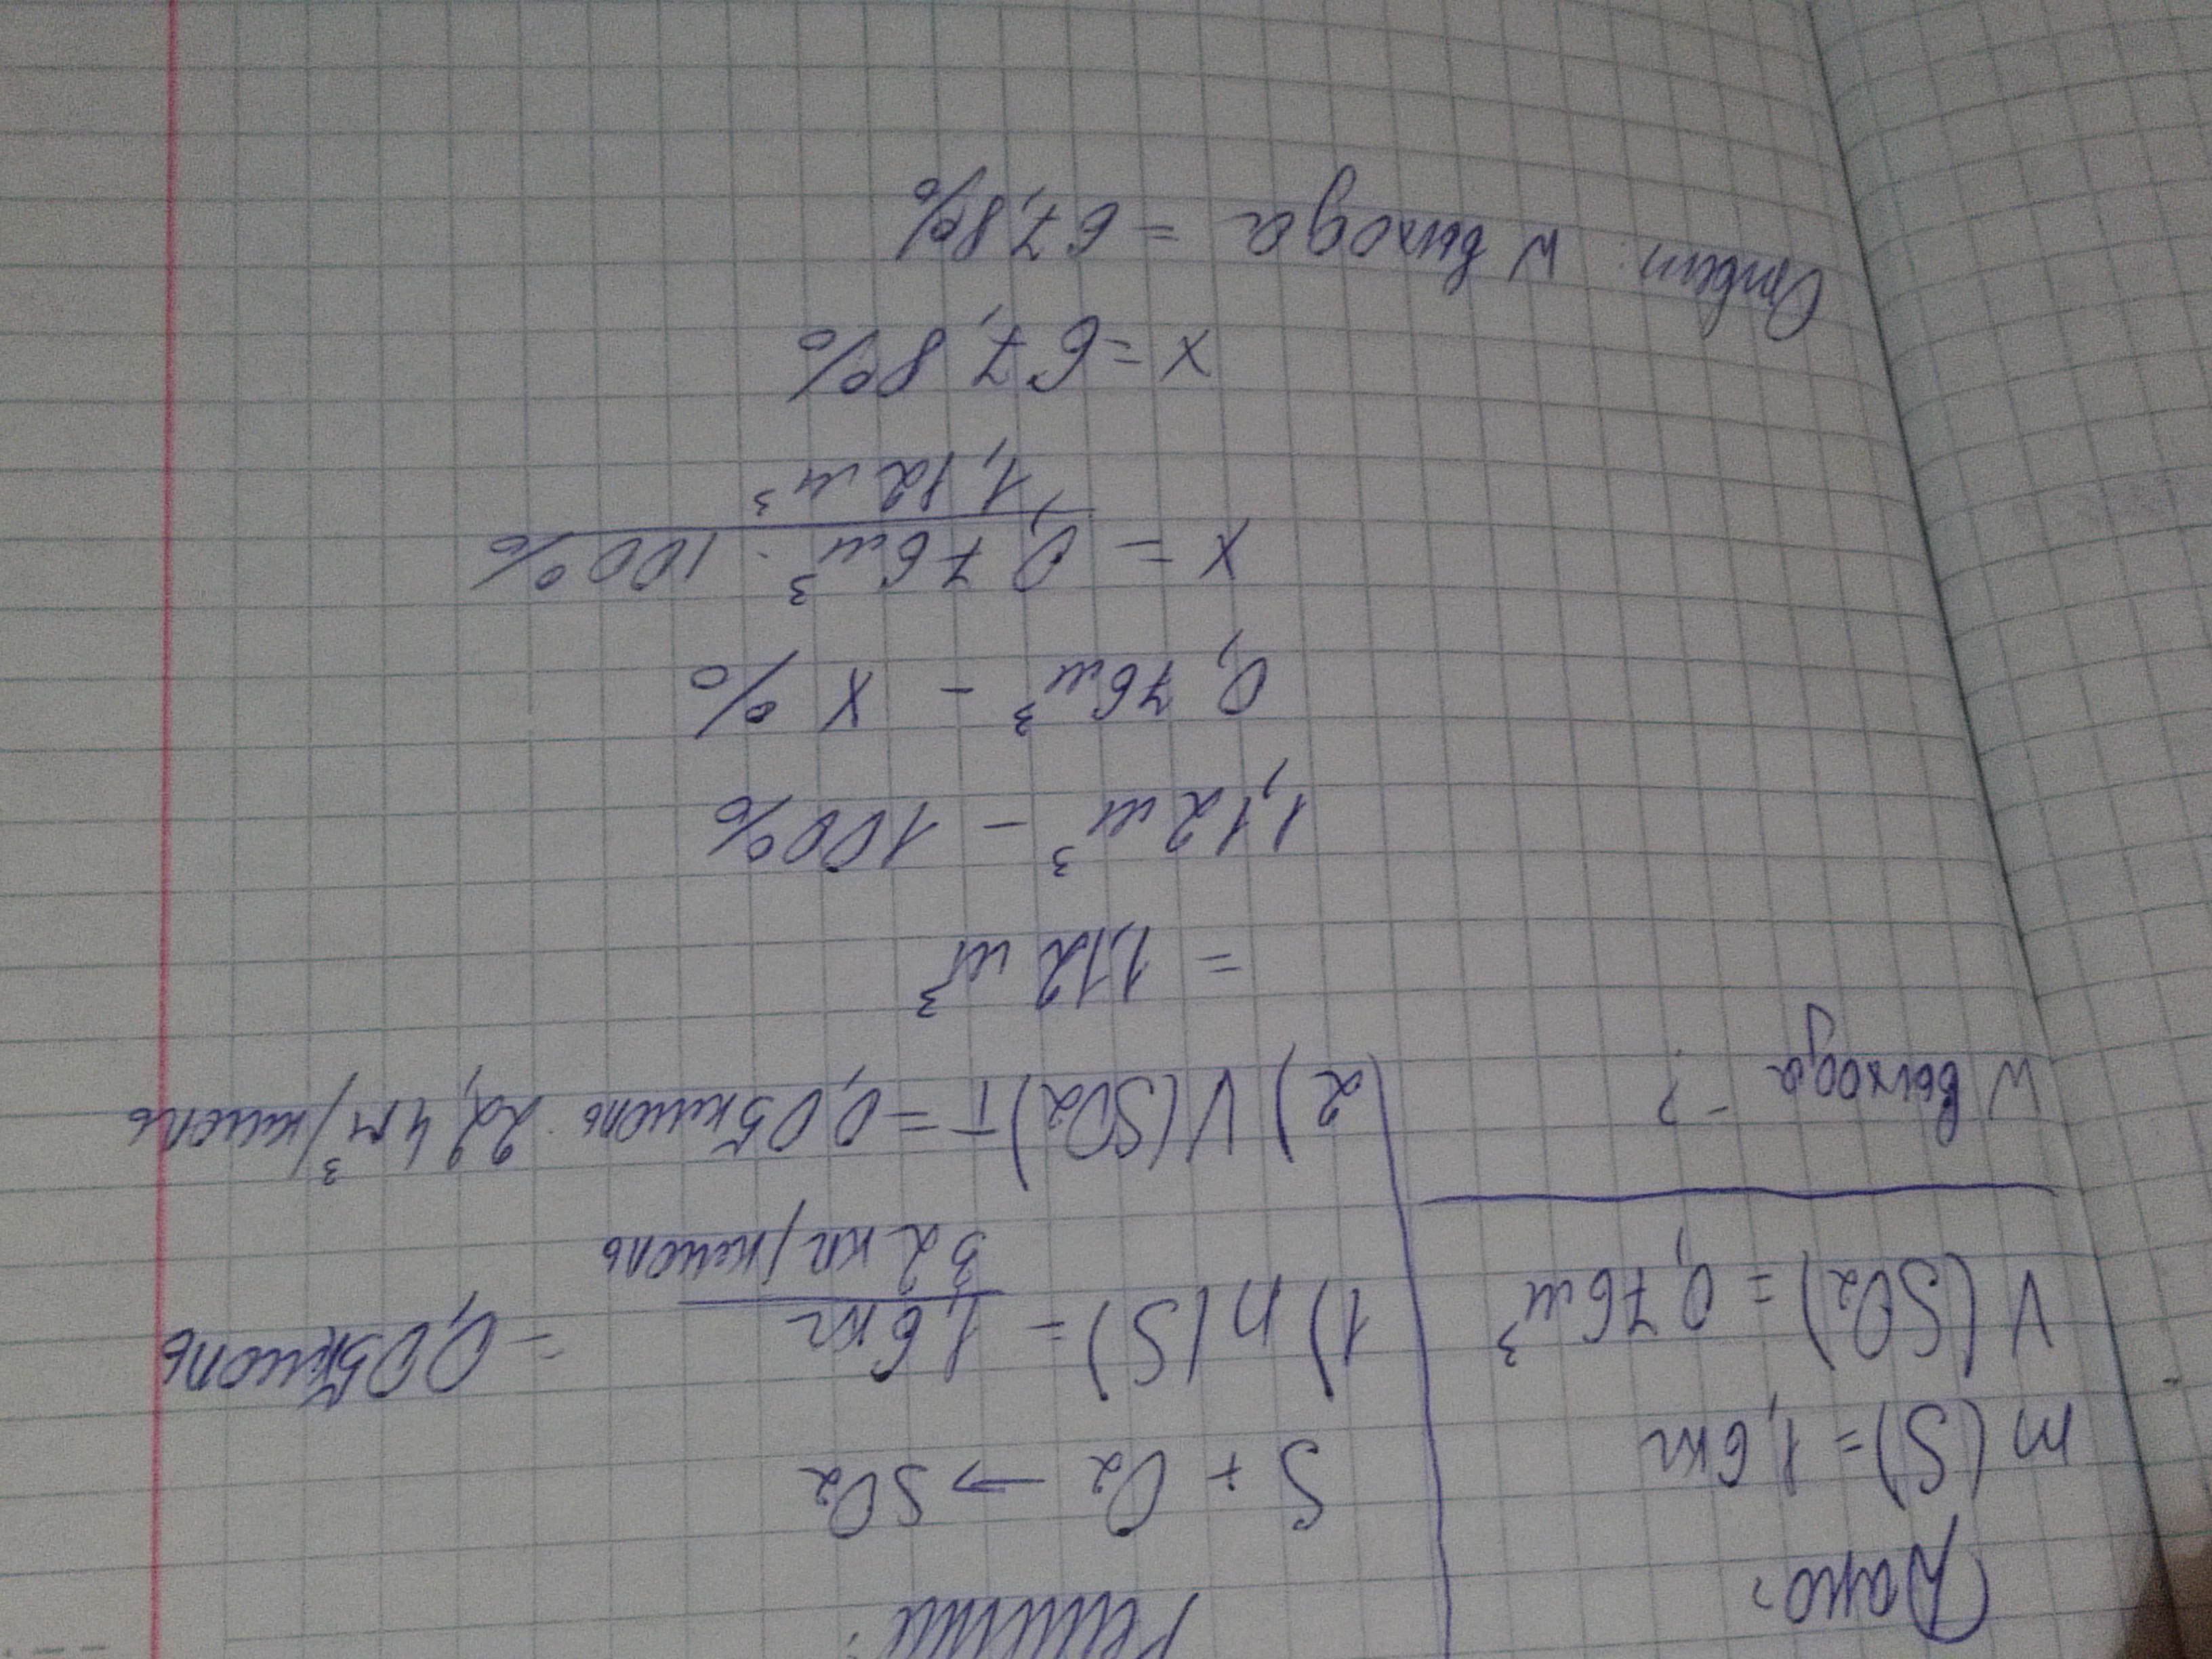 Дано:
m(S) = 1,6кг
V(SO2) = 0,76м³
W выхода - ?
Решение:
S + O2 → SO2
1) n(S) = 1,6кг / 32кг/кмоль = 0,05кмоль
2) V(SO2)T = 0,05кмоль · 22,4м³/кмоль
= 1,12м³
1,12м³ - 100%
0,76м³ - x%
x = 0,76м³ · 100% / 1,12м³
x = 67,8%
Ответ: W выхода = 67,8%